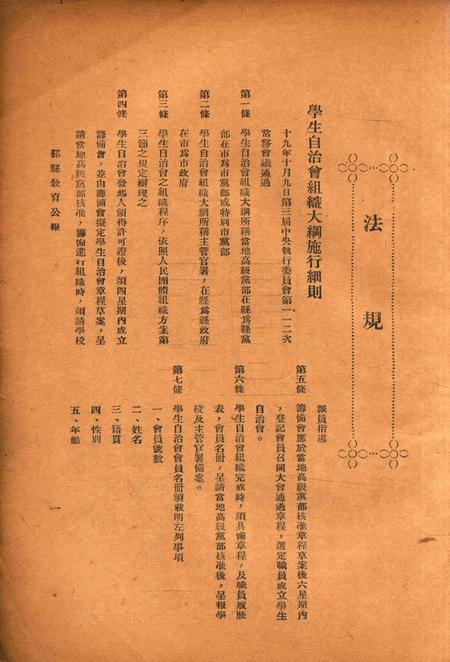 法規
學生自治會組織大綱施行細則
十九年十月九日第三屆中央執行委員會第一一二次
常務會議通過
第一條　學生自治會組織大綱所稱當地高級黨部在縣爲縣黨
部在市爲市黨部或特別市黨部
第二條　學生自治會組織大綱所稱主管官署，在縣爲縣政府
在市爲市政府
第三條　學生自治會之組織程序，依照人民團體組織方案第
三節之規定辦理之
第四條　學生自治會發起人領得許可證後，須四星期內成立
籌備會，並由籌備會擬定學生自治會章程草案，呈
請當地高級黨部核准，籌備進行組織時，須請學校
派員指導
第五條　籌備會應於當地高級黨部核准章程草案後六星期內
，登記會員召開大會通過章程，選定職員成立學生
自治會。
第六條　學生自治會組織完成時，須具備章程，及職員履歷
表，會員名冊，呈請當地高級黨部核准後，呈報學
校及主管官署備案。
第七條　學生自治會會員名冊須載明左列事項
一、會員號數
二、姓名
三、籍貫
四、性別
五、年齡
鄞縣教育公報
一